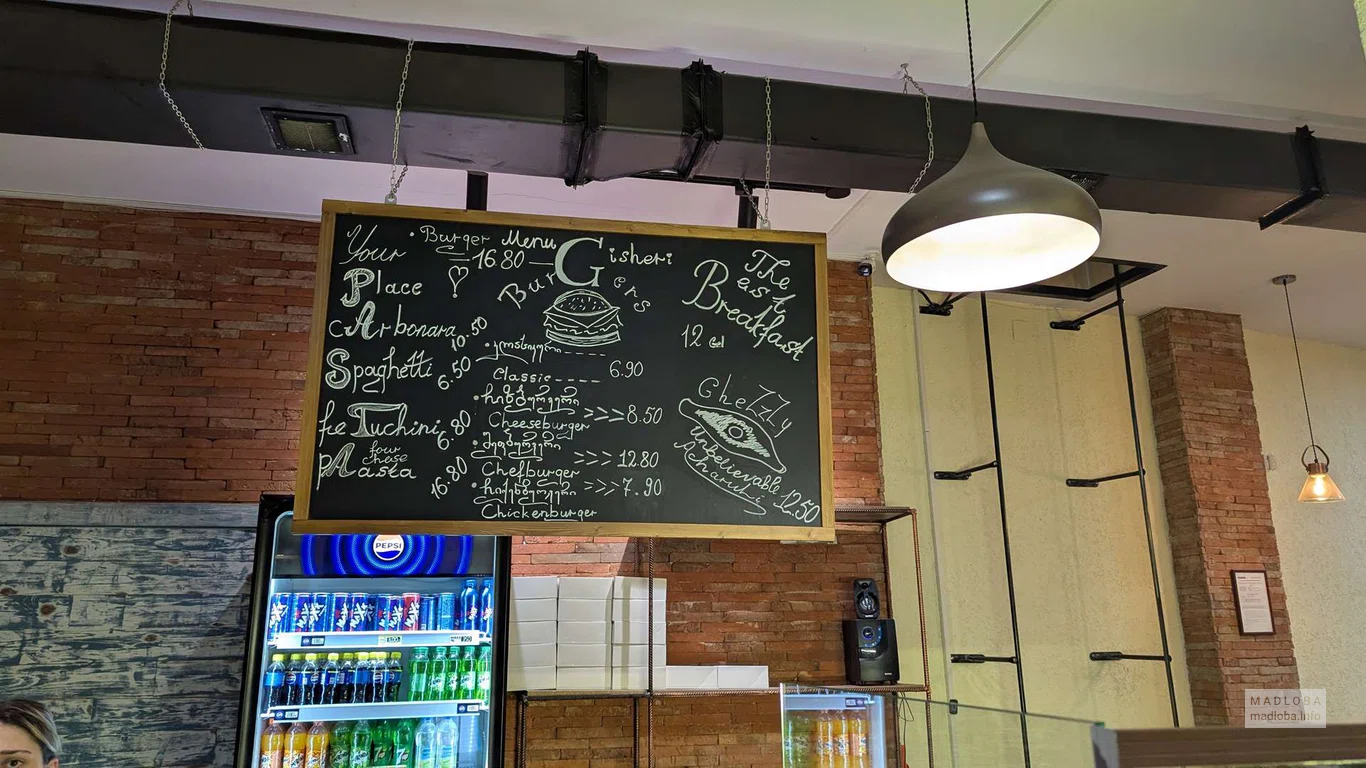 Your
Place
cArbonara 10.50
Spaghetti 6.50
feTuchini 6.80
four
chese
pAasta 16.80
• Burger Menu
16.80
Gisheri
Burgers
• კლასიკური
Classic ---- 6.90
• ჩიზბურგერი
Cheeseburger >>> 8.50
• შეფბურგერი
Chefburger >>> 12.80
• ჩიქენბურგერი >>> 7.90
Chickenburger
The
est
Breakfast
12 ₾
CheZZy
unbelievable
Acharuhi 12.50
PEPSI
MAX
MADLOBA
madloba.info